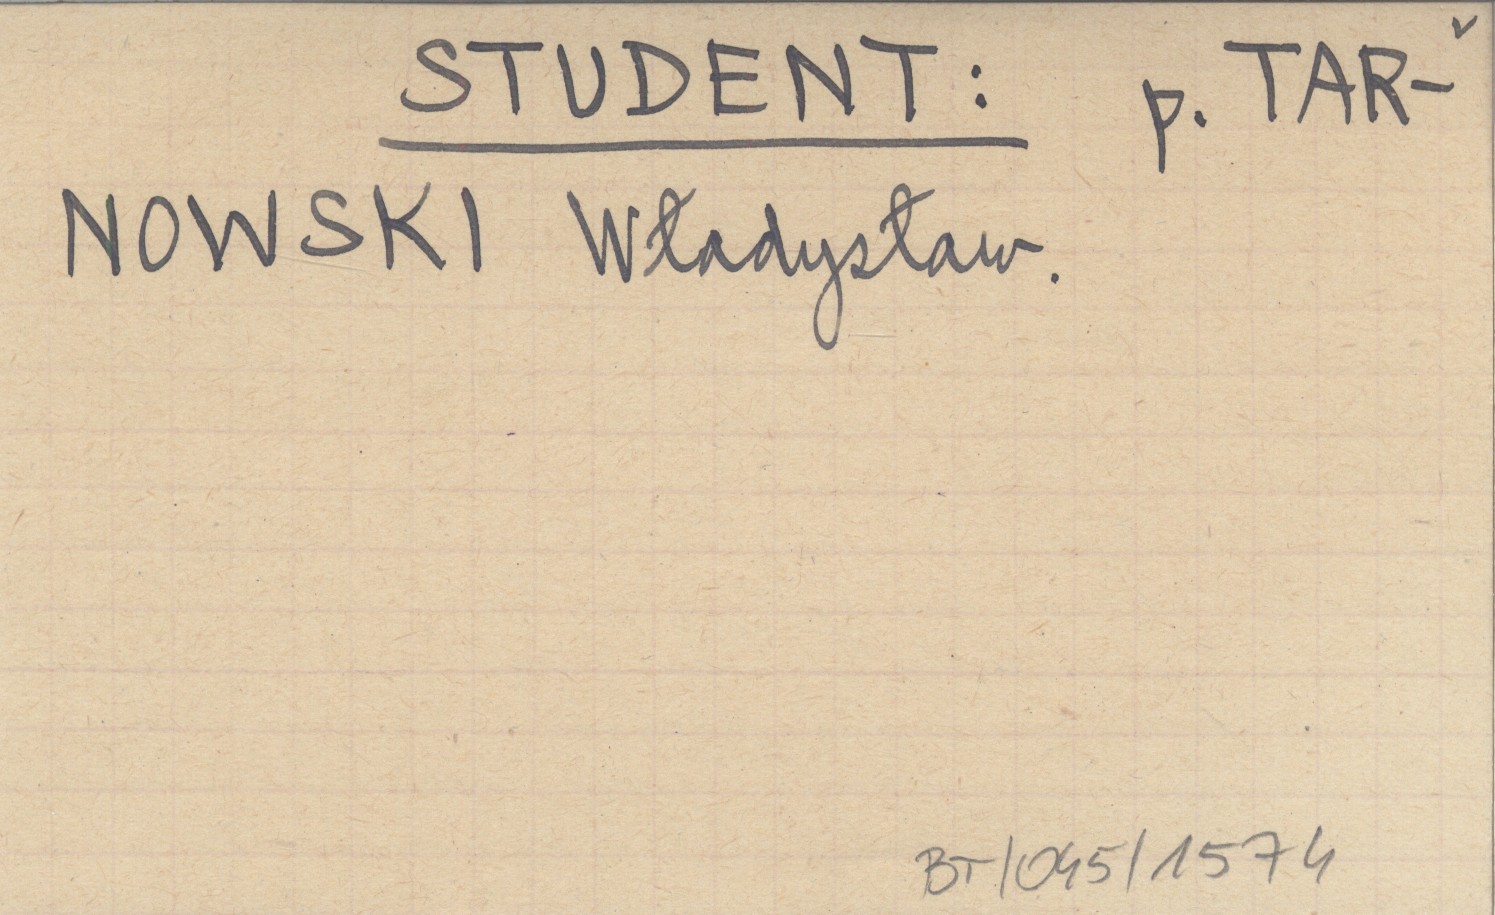 STUDENT: p. TAR-
NOWSKI Władysław.
BT/045/1574